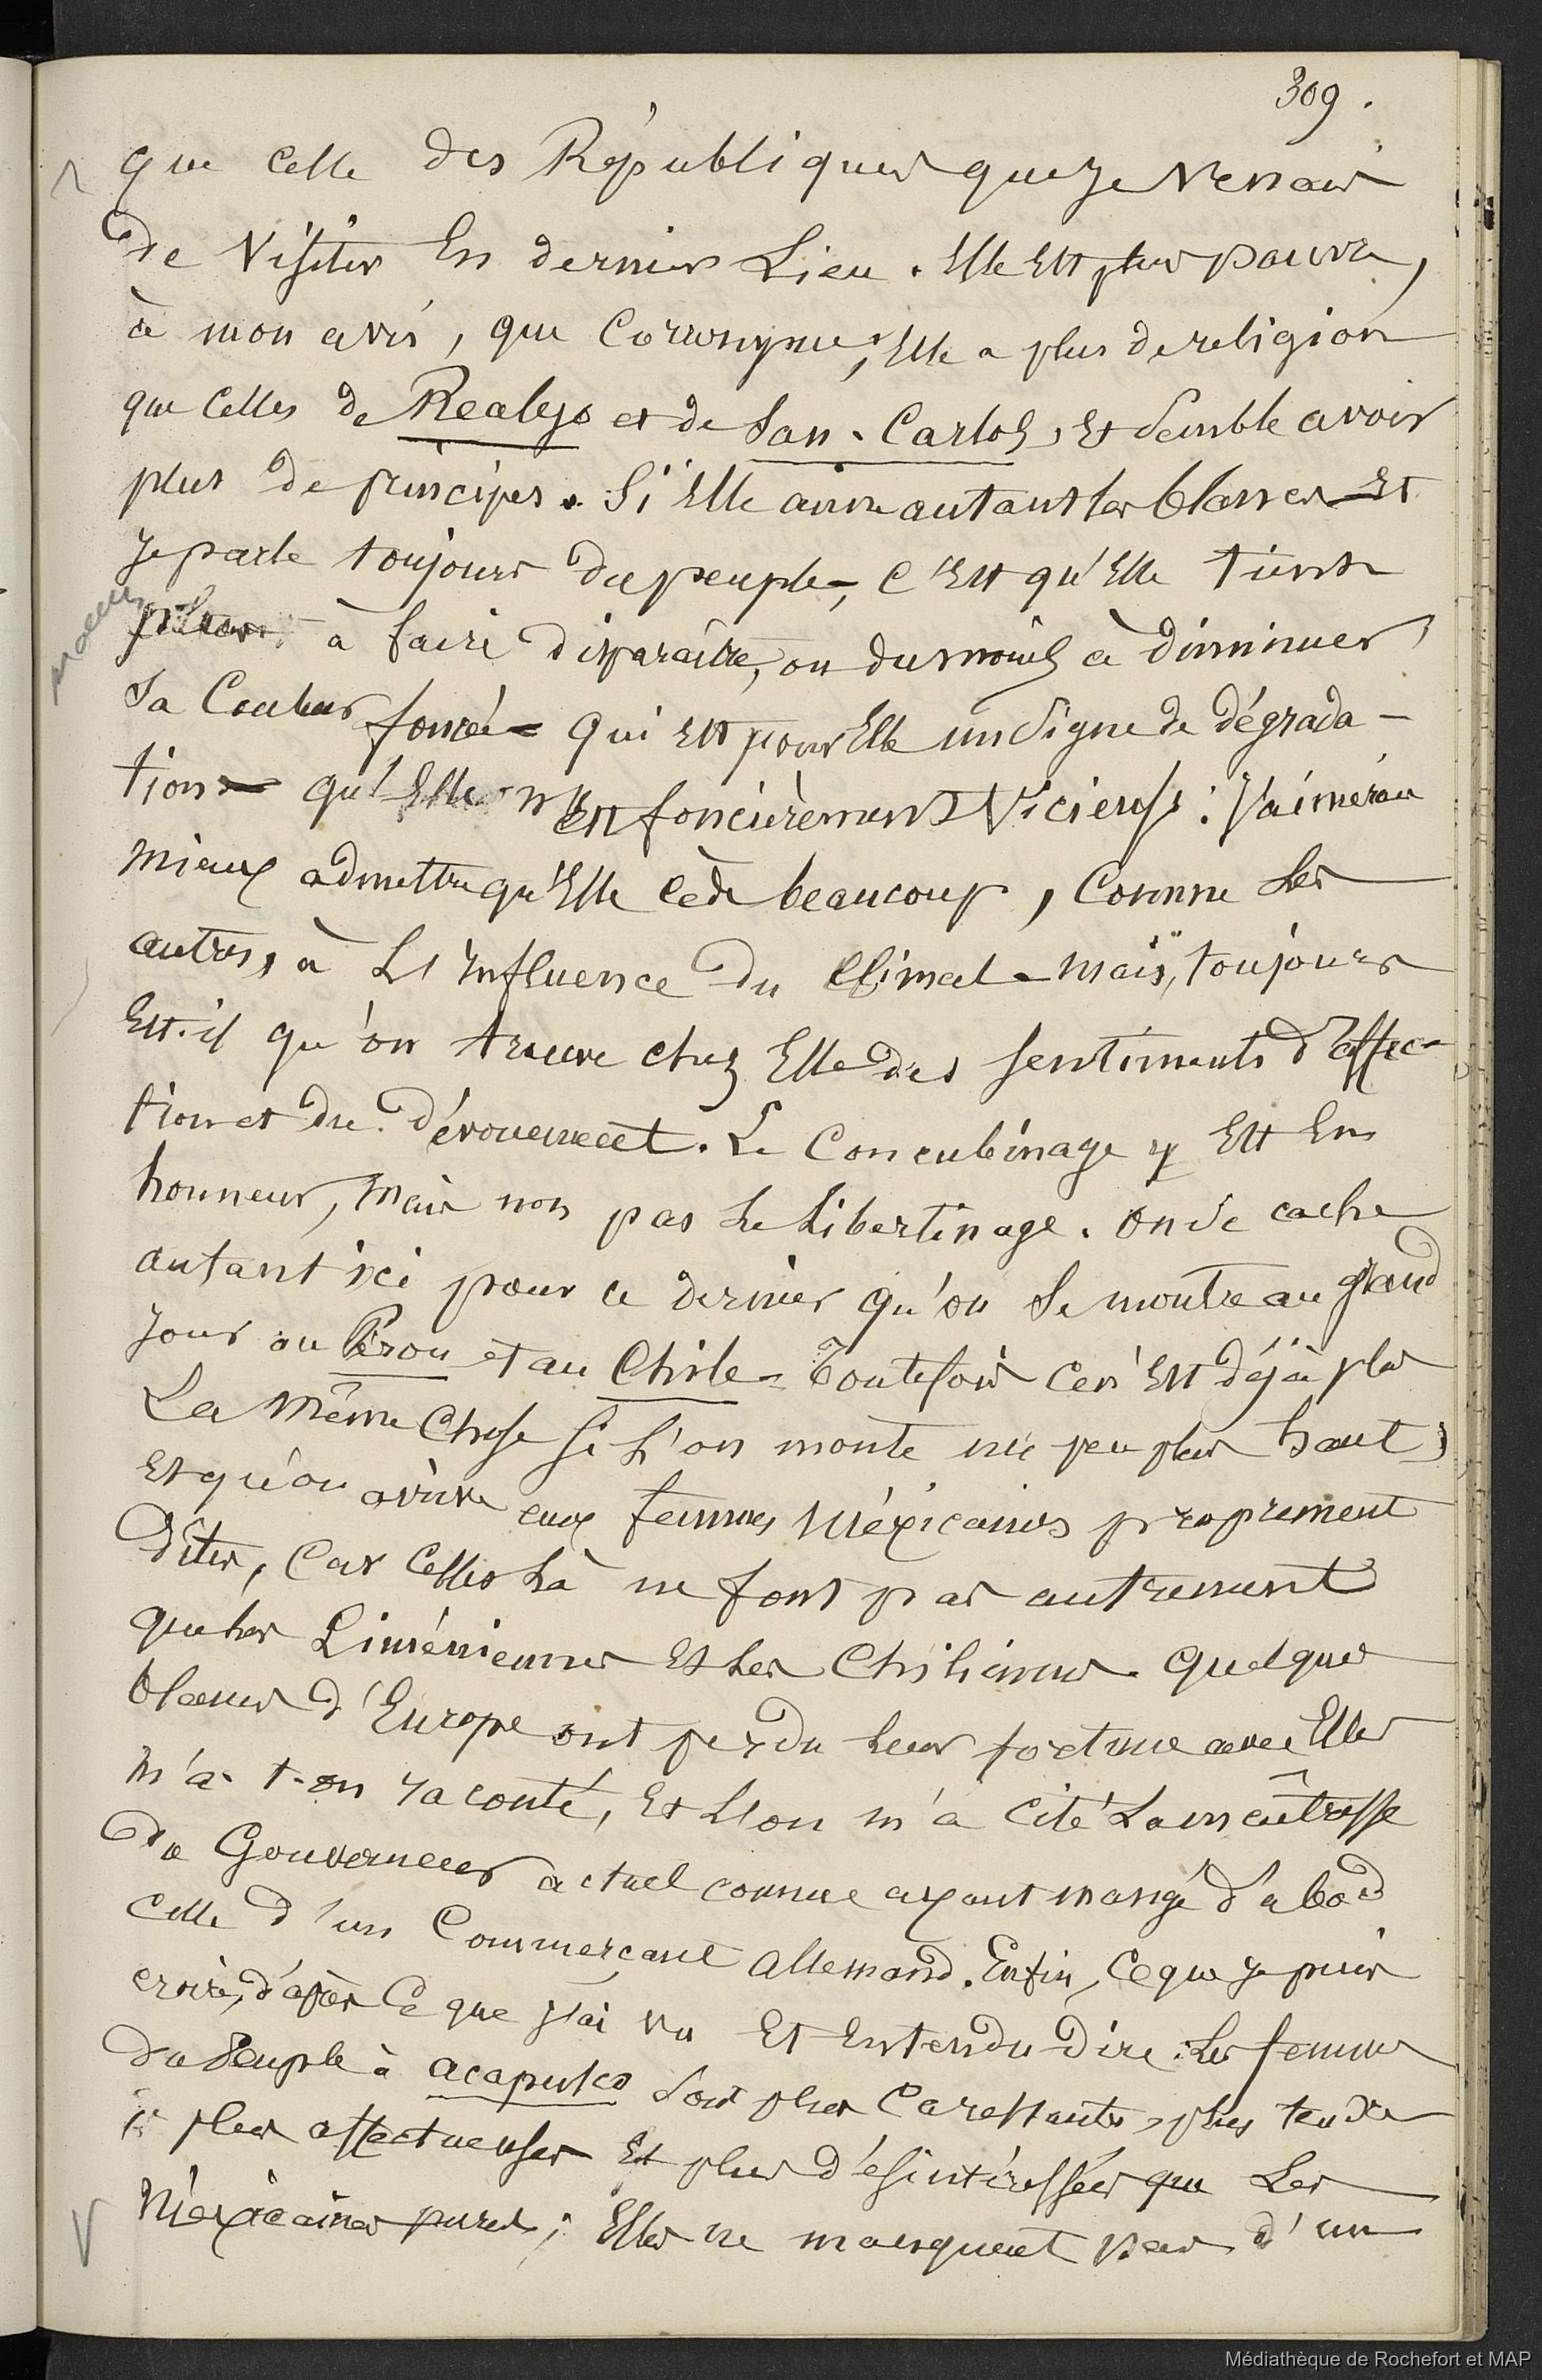 309.
que celle des Républiques que je venais
de visiter en dernier lieu. Elle est plus pauvre,
à mon avis, que Elle a plus de religion
que celles de Realejo et de San-Carlos, et semble avoir
plus de principes. Si elle aime autant les blancs – et
je parle toujours du peuple –, c'est qu'elle tient
à faire disparaître, ou du moins à diminuer
sa couleur foncée – qui est pour elle un signe de dégrada-
tion – qu'elle n'est foncièrement vicieuse : J'aimerais
mieux admettre qu'elle cède beaucoup, comme les
autres, à l'influence du climat – mais, toujours
est-il qu'on trouve chez elle des sentiments d'affec-
tion et du dévouement. Le concubinage y est en
honneur, mais non pas le libertinage. on se cache
autant ici pour ce dernier qu'on se montre au grand
jour au Pérou et au Chile – Toutefois ce n'est déjà plus
la même chose si l'on monte un peu plus haut,
et qu'on arrive aux femmes méxicaines proprement
dites, car celles là ne font pas autrement
que les Liméniennes et les Chiliennes. Quelques
blancs d'Europe ont perdu leur fortune avec elles
m'a-t-on raconté, et l'on m'a cité la maîtresse
du Gouverneur actuel comme ayant mangé d'abord
celle d'un Commerçant allemand. Enfin, ce que je puis
croire, d'après ce que j'ai vu et entendu dire : les femmes
du Peuple à acapulco sont plus caressantes, plus tendres
plus affectueuses et plus désintéressées que les
Méxicaines pures ; Elles ne manquent pas d'un
Médiathèque de Rochefort et MAP